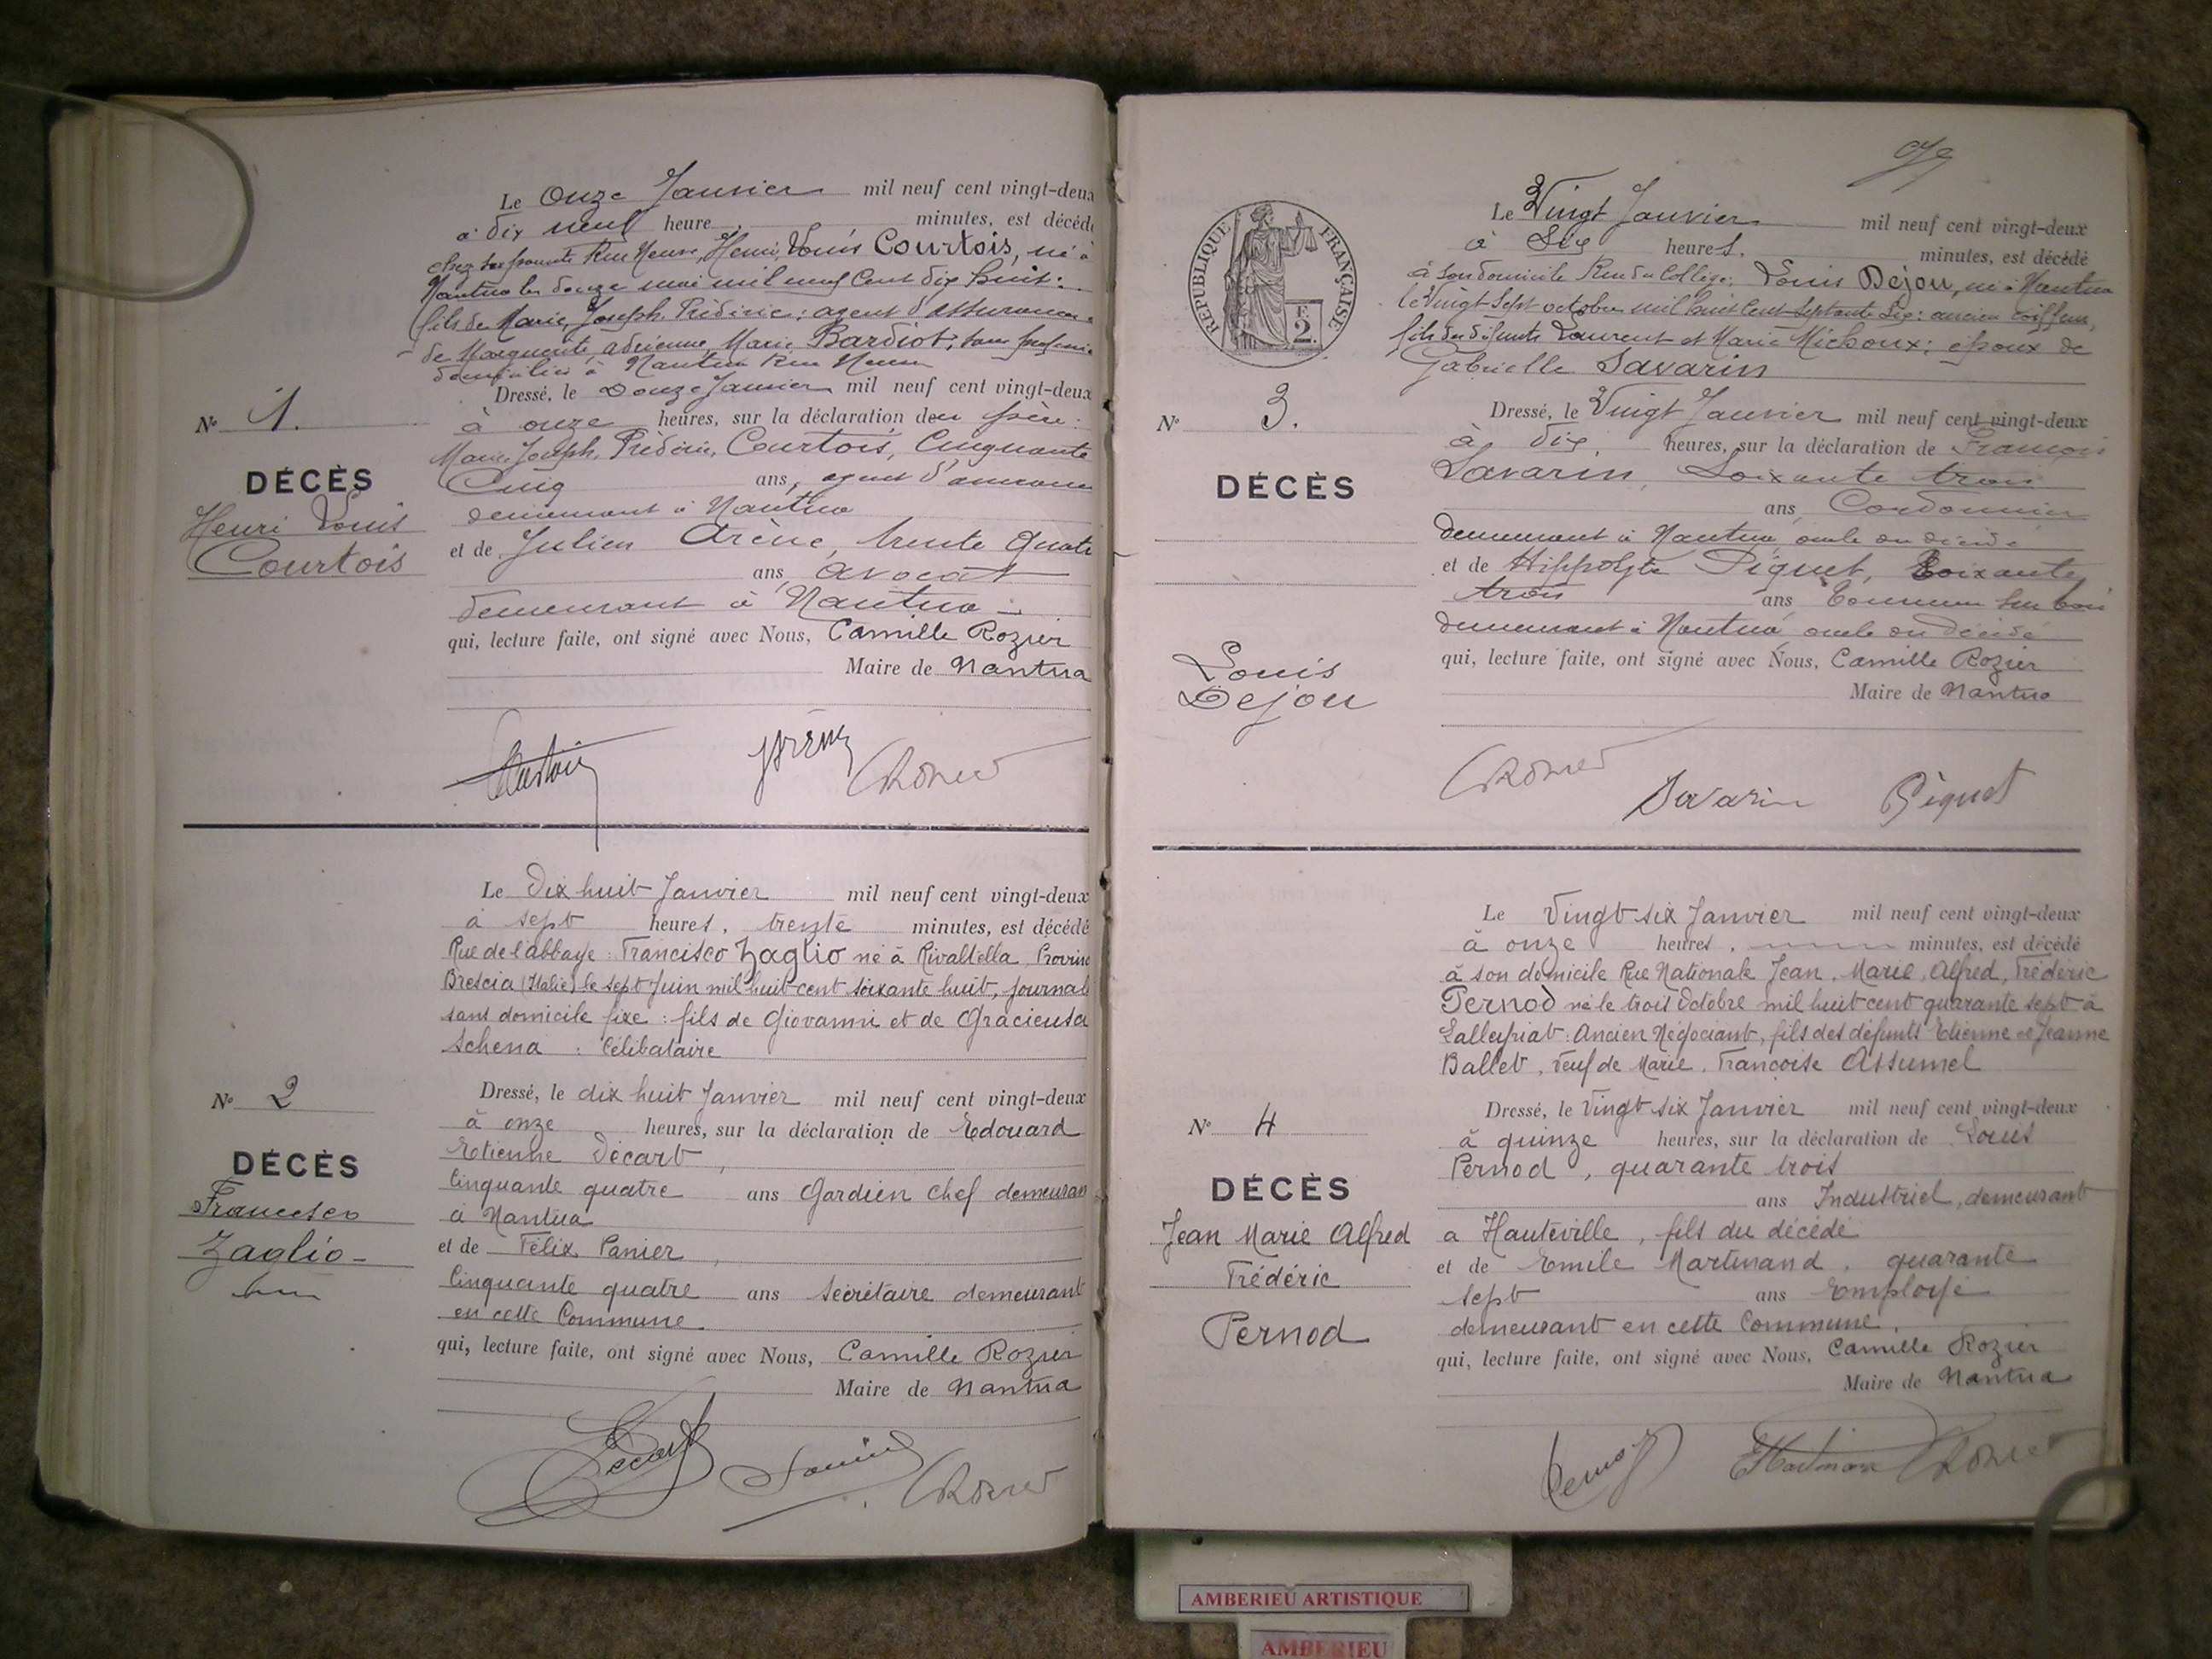 Le Onze Janvier mil neuf cent vingt-deux
à dix neuf heure minutes, est décédé
chez ses parents Rue Neuve, Henri, Louis Courtois, né à
Nantua le douze mai mil neuf cent dix huit :
fils de Marie, Joseph, Frédéric : agent d'assurances
de Marguerite, adrienne, Marie Bardiot, sans profession
domiciliés à Nantua Rue Neuve
Dressé, le Douze Janvier mil neuf cent vingt-deux
à onze heures, sur la déclaration du père :
Marie Joseph, Frédéric, Courtois, Cinquante
Cinq ans, agent d'assurances
demeurant à Nantua
et de Julien Arène, trente quatre
ans avocat
demeurant à Nantua
qui, lecture faite, ont signé avec Nous, Camille Rozier
Maire de Nantua
No 1.
DÉCÈS
Henri Louis
Courtois
Courtois JArène CRozier
Le Dix huit Janvier mil neuf cent vingt-deux
à sept heures, trente minutes, est décédé
Rue de l'abbaye : Francisco Zaglio né à Rivaltella, Provinc
Brescia (Italie) le sept Juin mil huit cent soixante huit, journal
sans domicile fixe : fils de Giovanni et de Gracieusa
Schena : Célibataire
Dressé, le dix huit Janvier mil neuf cent vingt-deux
à onze heures, sur la déclaration de Edouard
Etienne Décart,
Cinquante quatre ans Gardien chef demeuran
à Nantua
et de Félix Panier,
Cinquante quatre ans Secrétaire demeurant
en cette Commune
qui, lecture faite, ont signé avec Nous, Camille Rozier
Maire de Nantua
No 2
DÉCÈS
Francisco
Zaglio
Décart Panier CRozier
RÉPUBLIQUE FRANÇAISE
F
2.
Le Vingt Janvier mil neuf cent vingt-deux
à Six heures. minutes, est décédé
à son domicile Rue du Collège, Louis Dejou, né à Nantua
le Vingt Sept octobre mil huit Cent Septante Six : ancien coiffeur,
fils des défunts Laurent et Marie Michoux ; époux de
Gabrielle Savarin
Dressé, le Vingt Janvier mil neuf cent vingt-deux
à dix, heures, sur la déclaration de François
Savarin, Soixante trois
ans Cordonnier
demeurant à Nantua, oncle du décédé
et de Hippolyte Piquet, Soixante
trois ans Tourneur sur bois
demeurant à Nantua oncle du décédé
qui, lecture faite, ont signé avec Nous, Camille Rozier
Maire de Nantua
No 3.
DÉCÈS
Louis
Dejou
CRozier Savarin Piquet
Le Vingt six Janvier mil neuf cent vingt-deux
à onze heures, minutes, est décédé
à son domicile Rue Nationale Jean, Marie, Alfred, Frédéric
Pernod né le trois Octobre mil huit cent quarante sept à
Lalleyriat : Ancien Négociant, fils des défunts Etienne et Jeanne
Ballet, Veuf de Marie, Françoise Assumel
Dressé, le Vingt six Janvier mil neuf cent vingt-deux
à quinze heures, sur la déclaration de Louis
Pernod, quarante trois
ans Industriel, demeurant
a Hauteville, fils du décédé
et de Emile Martinand, quarante
sept ans Employé
demeurant en cette Commune.
qui, lecture faite, ont signé avec Nous, Camille Rozier
Maire de Nantua
No 4
DÉCÈS
Jean Marie Alfred
Frédéric
Pernod
Pernod EMartinand CRozier
AMBERIEU ARTISTIQUE
AMBERIEU